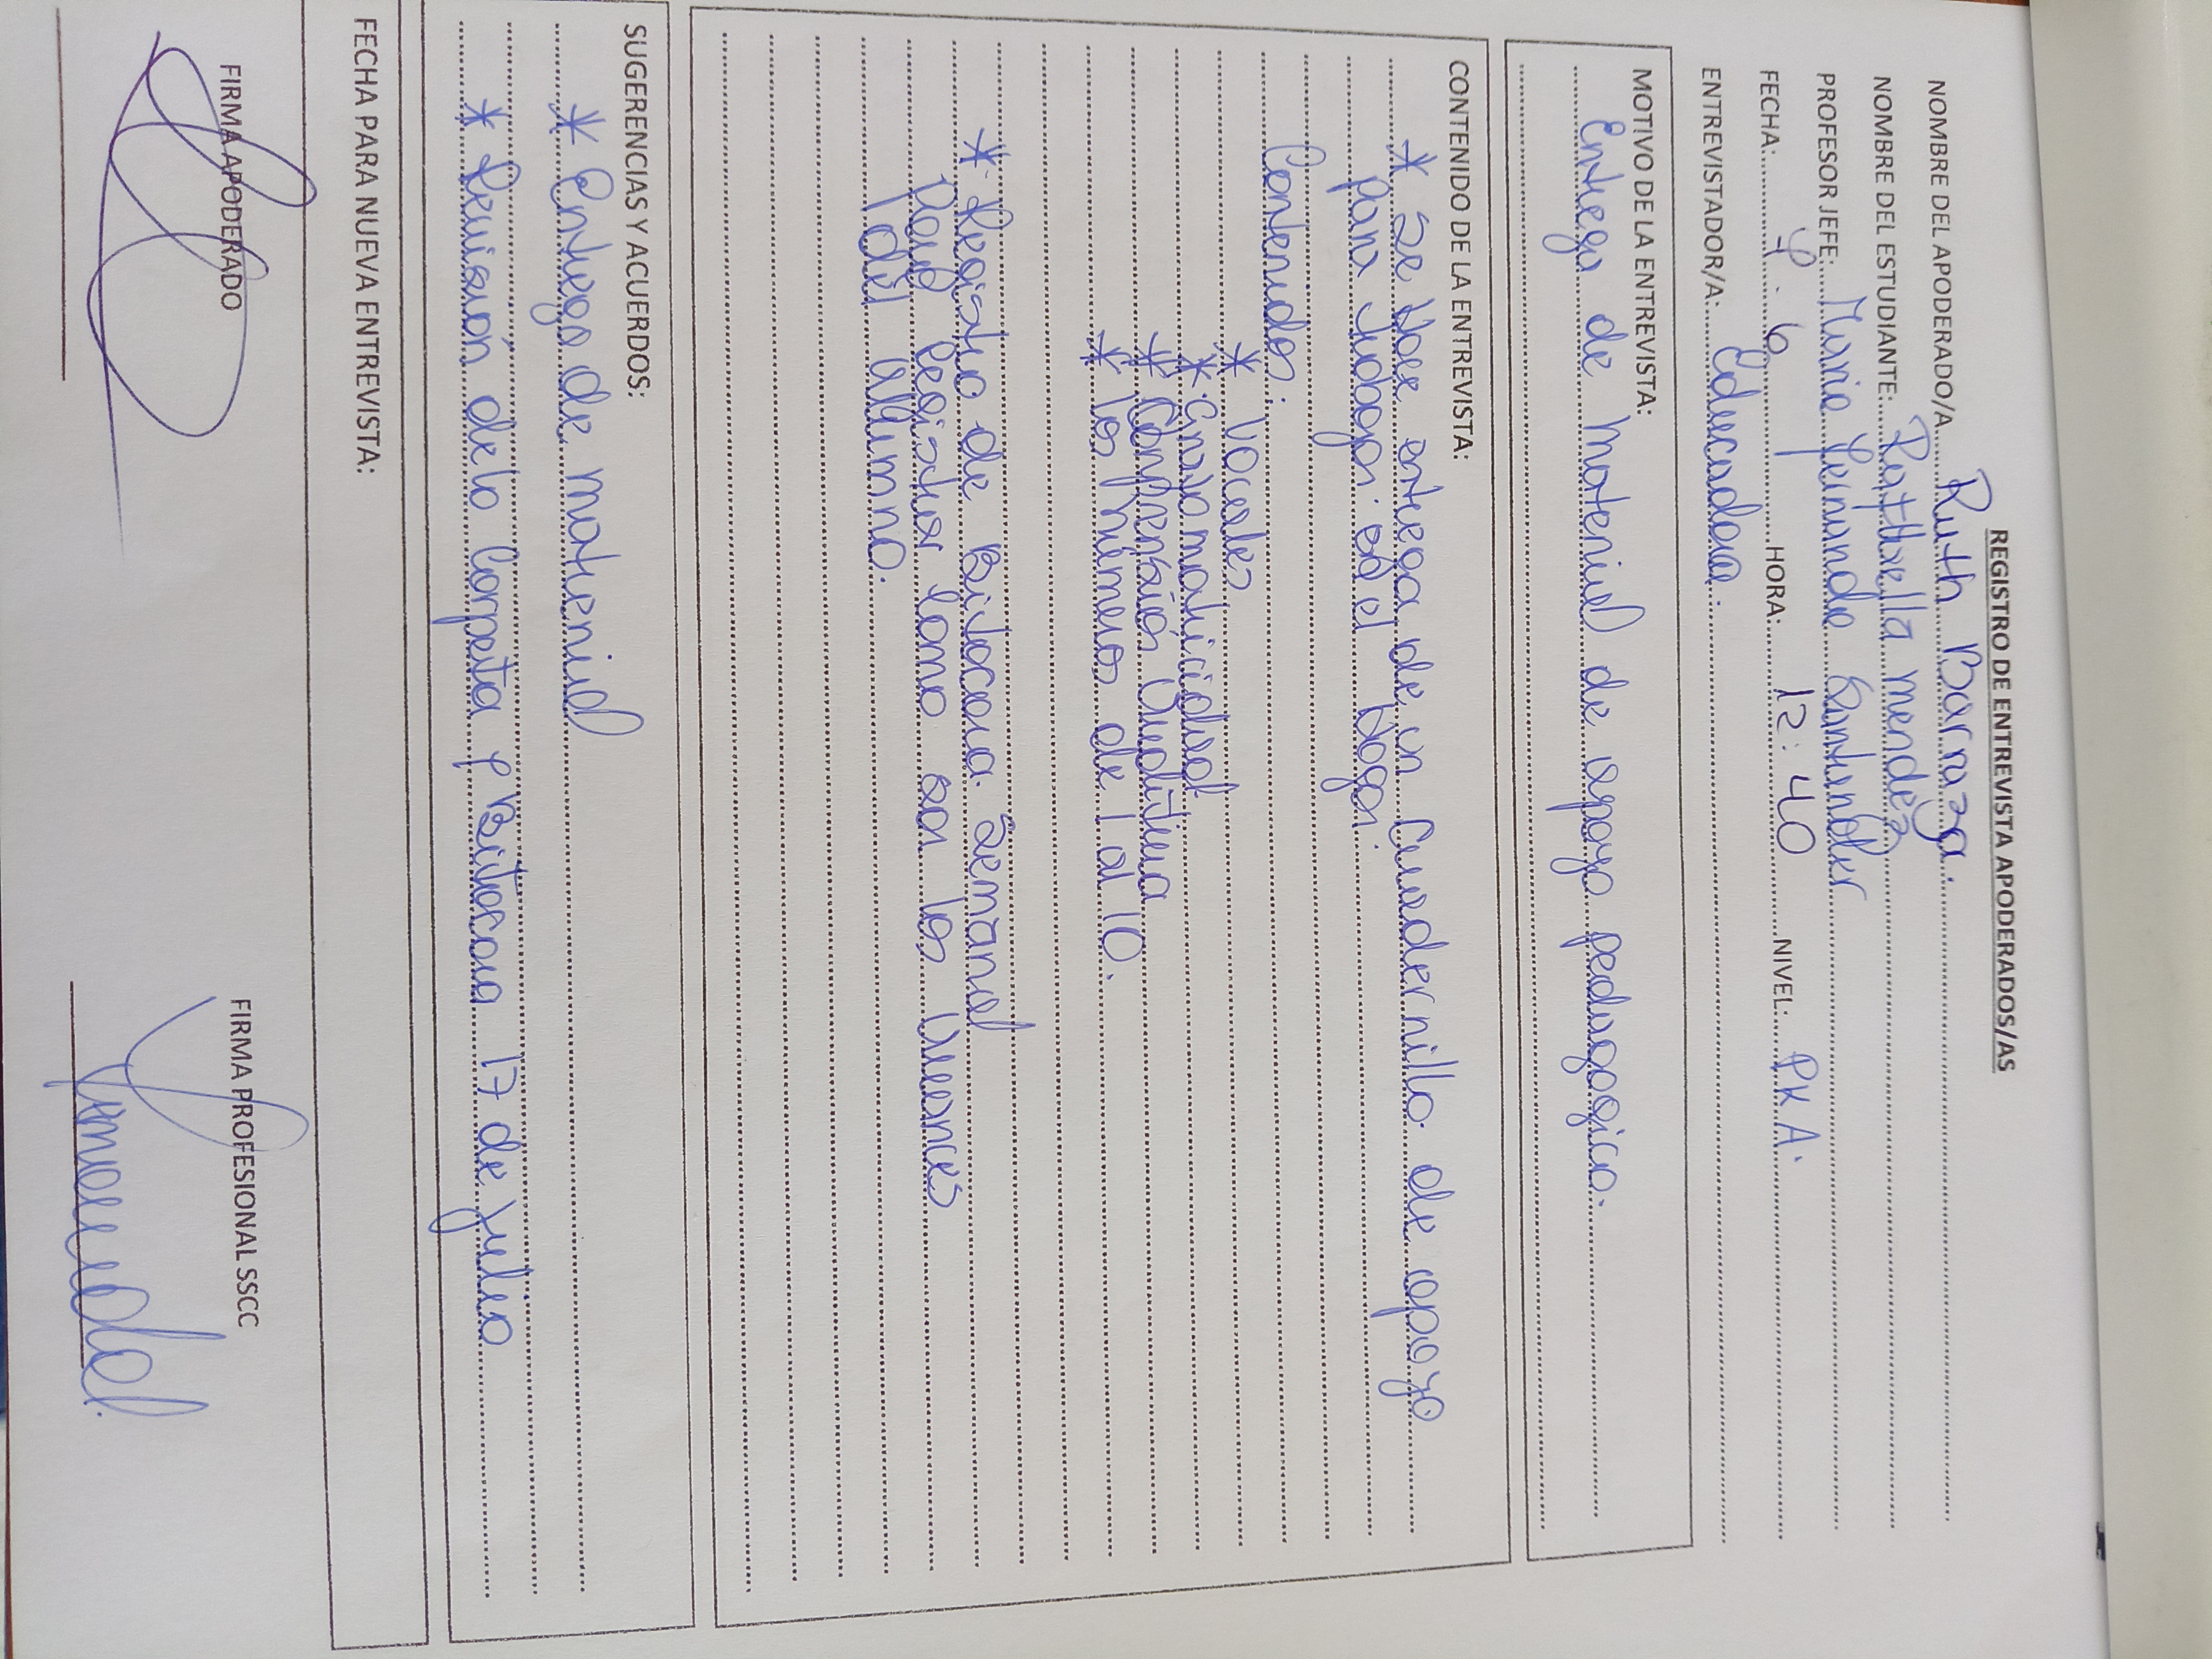 REGISTRO DE ENTREVISTA APODERADOS/AS
NOMBRE DEL APODERADO/A Ruth Barraza.
NOMBRE DEL ESTUDIANTE: mendez
PROFESOR JEFE: Maria Fernanda Santander
FECHA: 6 HORA: 12:40 NIVEL: PK A.
ENTREVISTADOR/A: Educadora.
MOTIVO DE LA ENTREVISTA:
Entrega de Material de apoyo pedagogico.
CONTENIDO DE LA ENTREVISTA:
* Se Hace entrega de un Cuadernillo de apoyo
para trabajar en el Hogar.
Contenidos:
* Vocales
* Grafomotricidad
* Comprensión Auditiva
* los números de 1 al 10.
* Registro de Bitacora Semanal
para Registrar como son los avances
del alumno.
SUGERENCIAS Y ACUERDOS:
* Entrega de material
* Revisión de la Carpeta y Bitacora 17 de julio
FECHA PARA NUEVA ENTREVISTA:
FIRMA APODERADO FIRMA PROFESIONAL SSCC